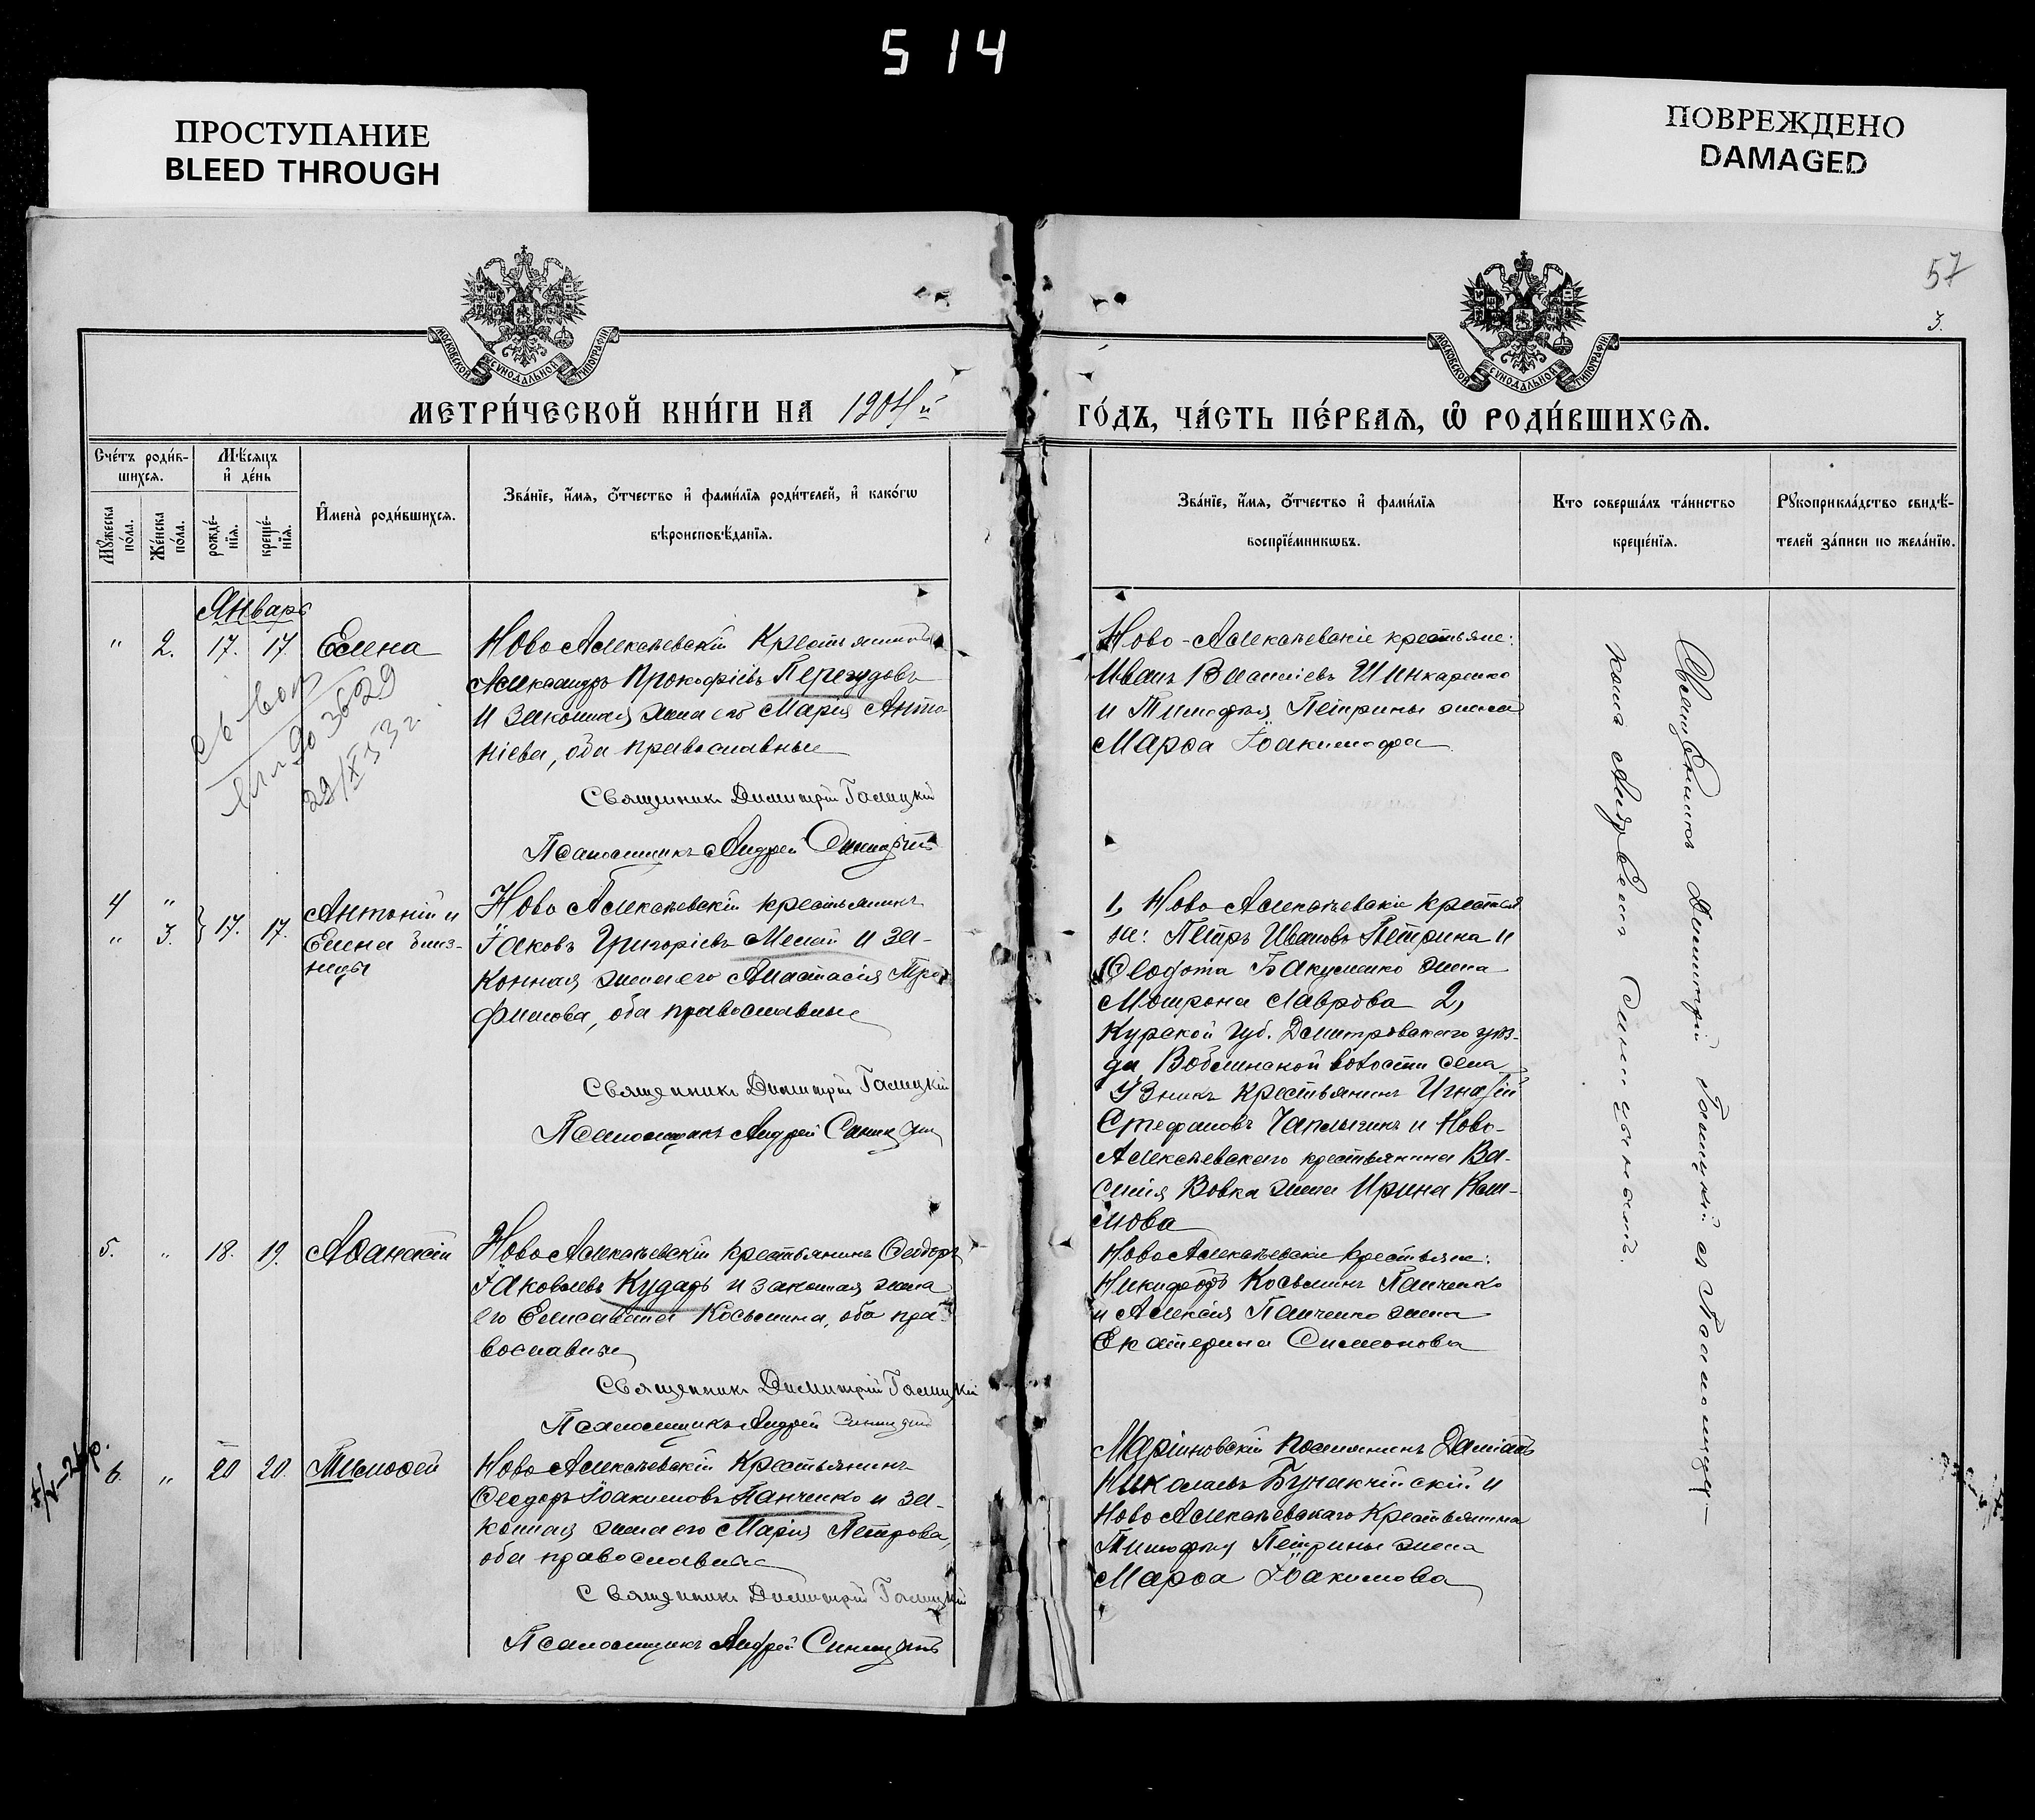 514
ПРОСТУПАНИЕ
BLEED THROUGH
ПОВРЕЖДЕНО
DAMAGED
57
3.
МОСКОВСКОЙ СѴНОДАЛЬНОЙ ТИПОГРАФІИ
МОСКОВСКОЙ СѴНОДАЛЬНОЙ ТИПОГРАФІИ
МЕТРИ́ЧЕСКОЙ КНИ́ГИ НА 1904й
ГО́ДЪ, ЧА́СТЬ ПЕ́РВАЯ, Ѡ РОДИ́ВШИХСЯ.
Сче́тъ роди́в-
шихся.
Мꙋ́жеска по́ла.
Же́нска по́ла.
Мѣ́сяцъ
и҆ де́нь
рожде́-
нія.
креще́-
нія.
И҆мена̀ роди́вшихся.
Зва́нїе, и҆́мя, о҆́тчество и҆ фами́лїя роди́телей, и҆ како́гѡ
вѣроисповѣ́данїя.
Зва́нїе, и҆́мя, о҆́тчество и҆ фами́лїя
воспрїе́мникѡвъ.
Кто соверша́лъ та́инство
креще́нїя.
Рꙋкоприкла́дство свидѣ́-
телей за́писи по жела́нїю.
Январь
" 2. 17. 17. Елена
НовоАлексѣевскій Крестьянинъ
Александръ Прокофіевъ Перегудовъ
и законная жена его Марія Анто-
ніева, оба православные
Священникъ Димитрій Галицкій
Псаломщикъ Андрей
29/X 53 г.
Ново-Алексѣевскіе крестьяне:
Иванъ Власіевъ Шинкаренко
и Тимофея Петрины жена
Марѳа Іоакимова
4 "
" 3. } 17. 17. Антоній и
Елена близ-
нецы
Ново Алексѣевскій крестьянинъ
Іаковъ Григоріевъ и за-
конная жена его Анастасія Тро-
фимова, оба православные
Священникъ Димитрій Галицкій
Псаломщикъ Андрей
1, Ново Алексѣевскіе крестья-
не: Петръ Ивановъ Петрина и
Ѳеодота Бакуменко жена
Мотрона Лаврова 2,
Курской губ. Дмитровскаго уѣз-
да волости села
крестьянинъ Игнатій
Стефановъ Чаплыгинъ и Ново-
Алексѣевскаго крестьянина Ва-
силія Вовка жена Ирина
5. " 18. 19. Аѳанасій
НовоАлексѣевскій крестьянинъ Ѳеодоръ
Іаковлевъ Кударь и законная жена
его Елисавета Косьмина, оба пра-
вославные
Священникъ Димитрій Галицкій
Псаломщикъ Андрей
НовоАлексѣевскіе крестьяне:
Никифоръ Косьминъ Панченко
и Алексія Панченко жена
Екатерина Симеонова
6. " 20 20. Тимоѳей
НовоАлексѣевскій Крестьянинъ
Ѳеодоръ Іоакимовъ Панченко и за-
конная жена его Марія Петрова,
оба православные
Священникъ Димитрій Галицкій
Псаломщикъ Андрей
Маріиновскій поселянинъ Даміанъ
Николаевъ и
НовоАлексѣевскаго Крестьянина
Тимофея Петрины жена
Марѳа Іоакимова
Священникъ Димитрій Галицкій съ Псаломщи-
комъ Андреемъ